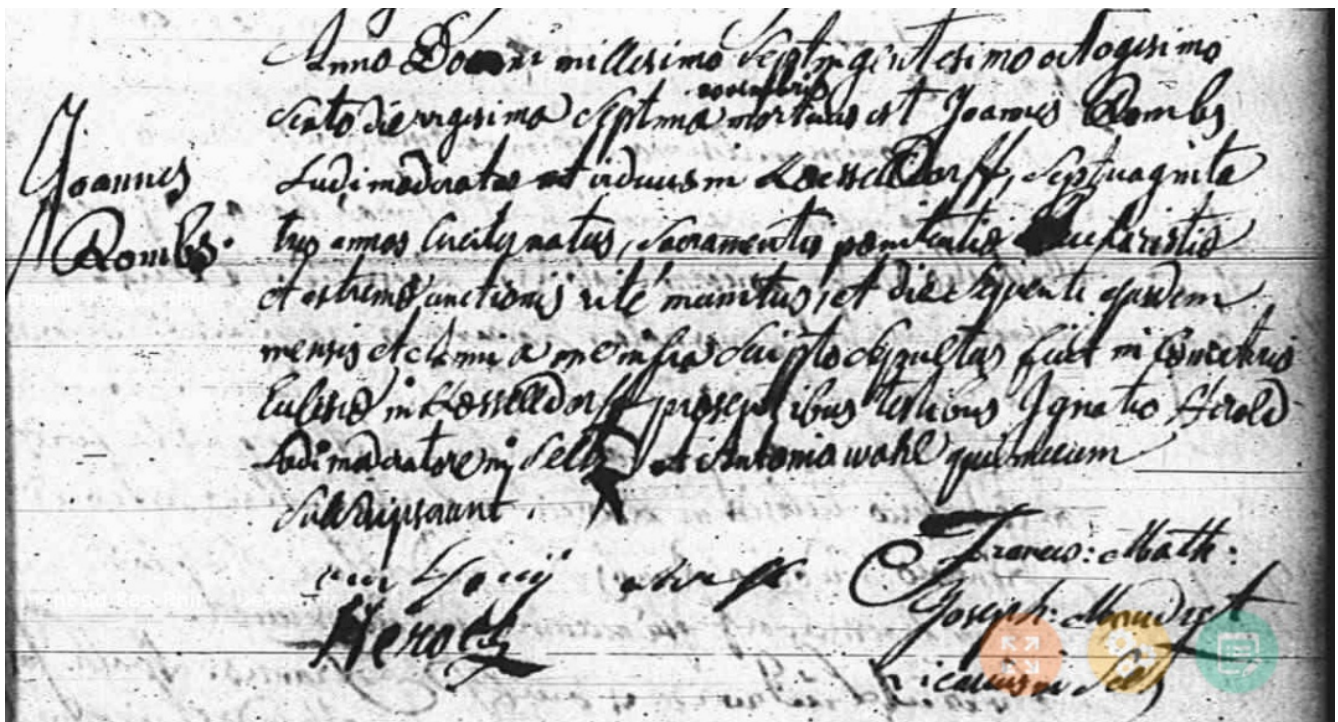 Joannes
Rombs.
Anno Domini millesimo septingentesimo octogesimo
sexto die vigesima septima novembris mortuus est Joannes Rombs
Ludimoderator et viduus in Kesseldorff, septuaginta
tres annos circiter natus, sacramentis poenitentiae Eucharistiae
et extremae unctionis rite munitus, et die sequenti ejusdem
mensis et anni a me infra scripto sepultus fuit in Coemeterio
Ecclesiae in Kesseldorff praesentibus testibus Ignatio Herold
Ludimoderatore in Seltz et Antonio wahl qui mecum
subscripserunt.
Francis: Math:
Joseph:
Herold
Vicarius in Seltz